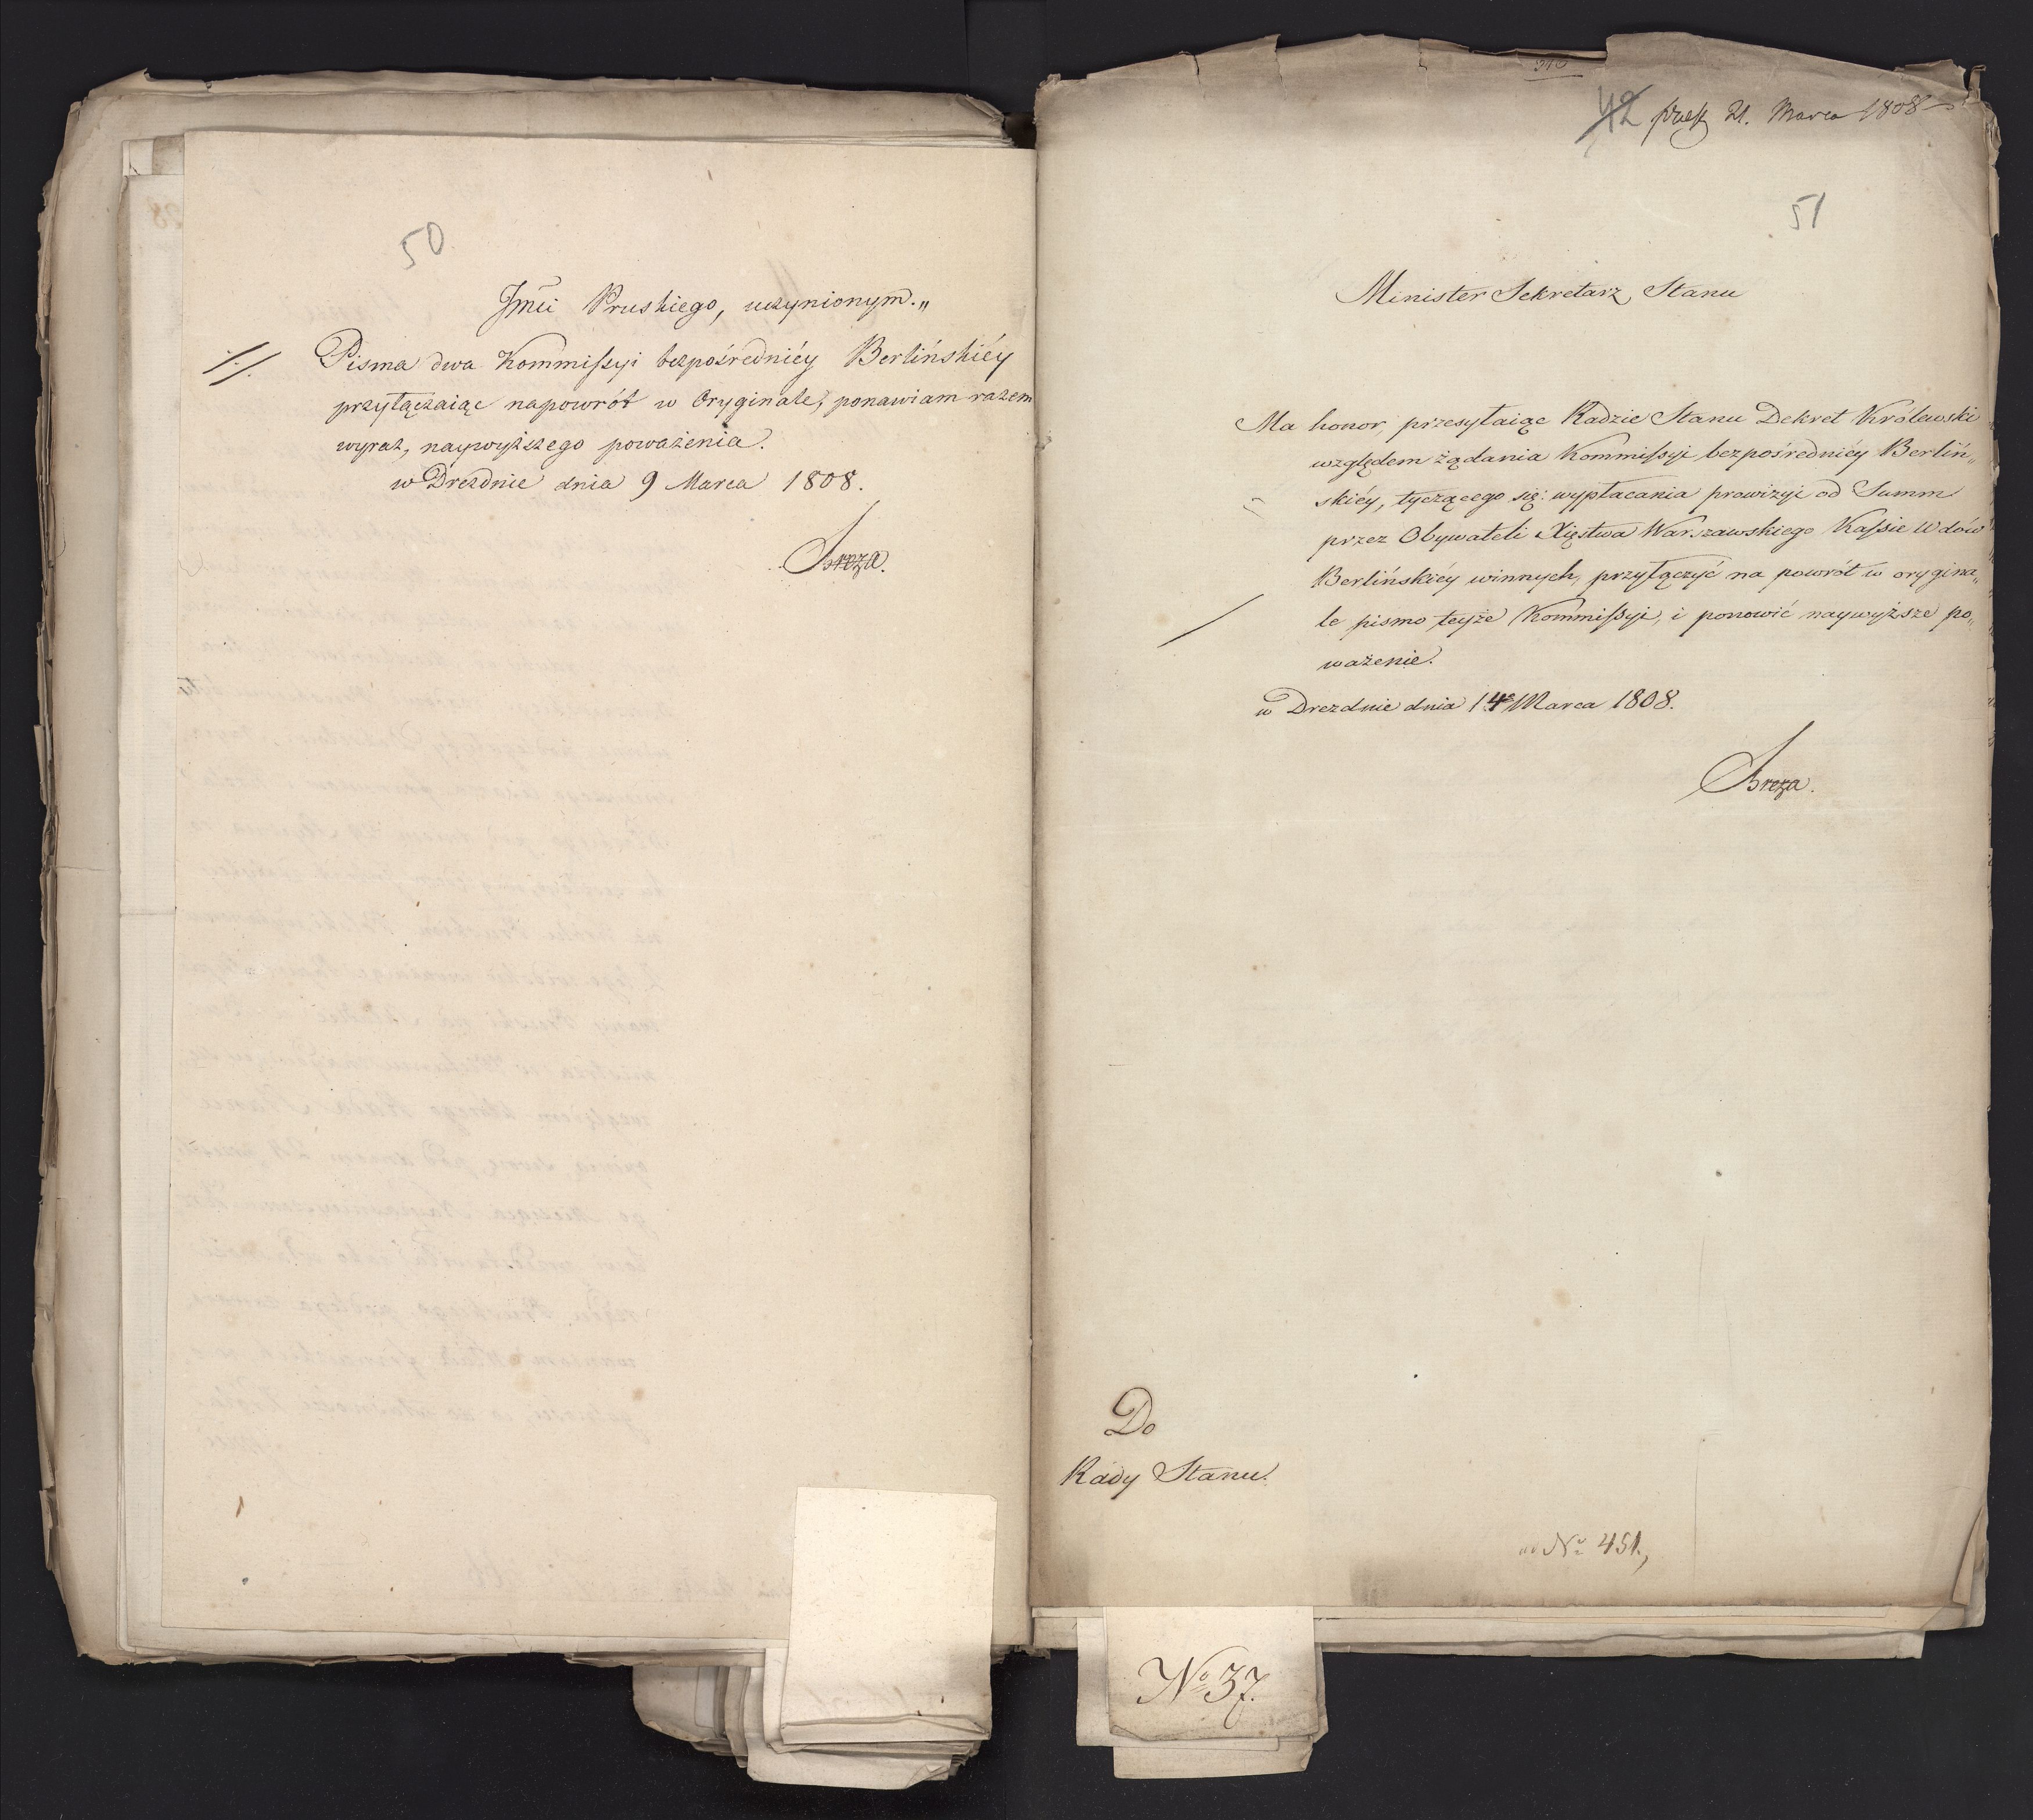 50
Jmći Pruskiego, uczynionym.„
Pisma dwa Kommissyi bezpośredniéy Berlińskiéy
przyłączaiąc napowrót w Oryginale, ponawiam razem
wyraz, naywyższego poważenia.
w Dreznie dnia 9 Marca 1808.
Breza.
42 praes 21. Marca 1808
51
Minister Sekretarz Stanu
Ma honor, przesyłaiąc Radzie Stanu Dekret Królewski
względem żądania Kommissyi bezpośredniéy Berliń„
skiéy, tyczącego się wypłacania prowizyi od Summ
przez Obywateli Xięstwa Warszawskiego Kassie Wdów
Berlińskiéy winnych, przyłączyć na powrót w orygina„
le pismo teyże Kommissyi, i ponowić naywyższe po„
ważenie.
w Dreznie dnia 14 Marca 1808.
Breza.
Do
Rady Stanu.
No 451.
No 37.